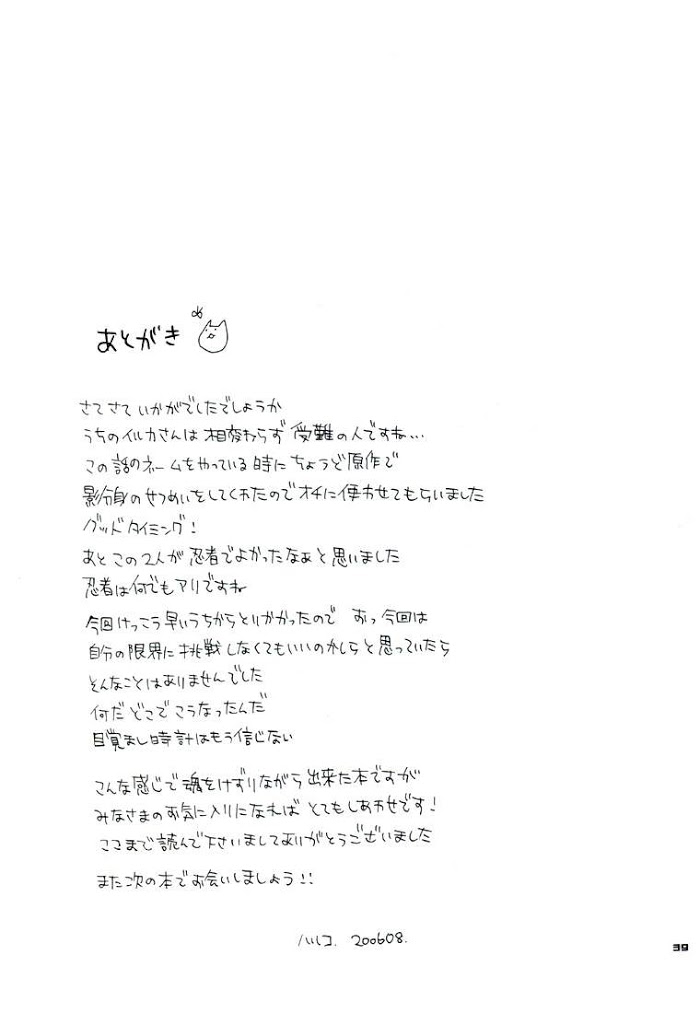 あとがき
さてさていかがでしたでしょうか
うちのイルカさんは相変わらず受難の人ですね…
この話のネームをやっている時にちょうど原作で
影分身のせつめいをしてくれたのでオチに使わせてもらいました
グッドタイミング!
あとこの2人が忍者でよかったなぁと思いました
忍者は何でもアリですね
今回けっこう早いうちからとりかかったので おっ今回は
自分の限界に挑戦しなくてもいいのかしらと思っていたら
そんなことはありませんでした
何だどこでこうなったんだ
目覚まし時計はもう信じない
こんな感じで魂をけずりながら出来た本ですが
みなさまのお気に入りになればとてもしあわせです!
ここまで読んで下さいましてありがとうございました
また次の本でお会いしましょう!!
200608.
39